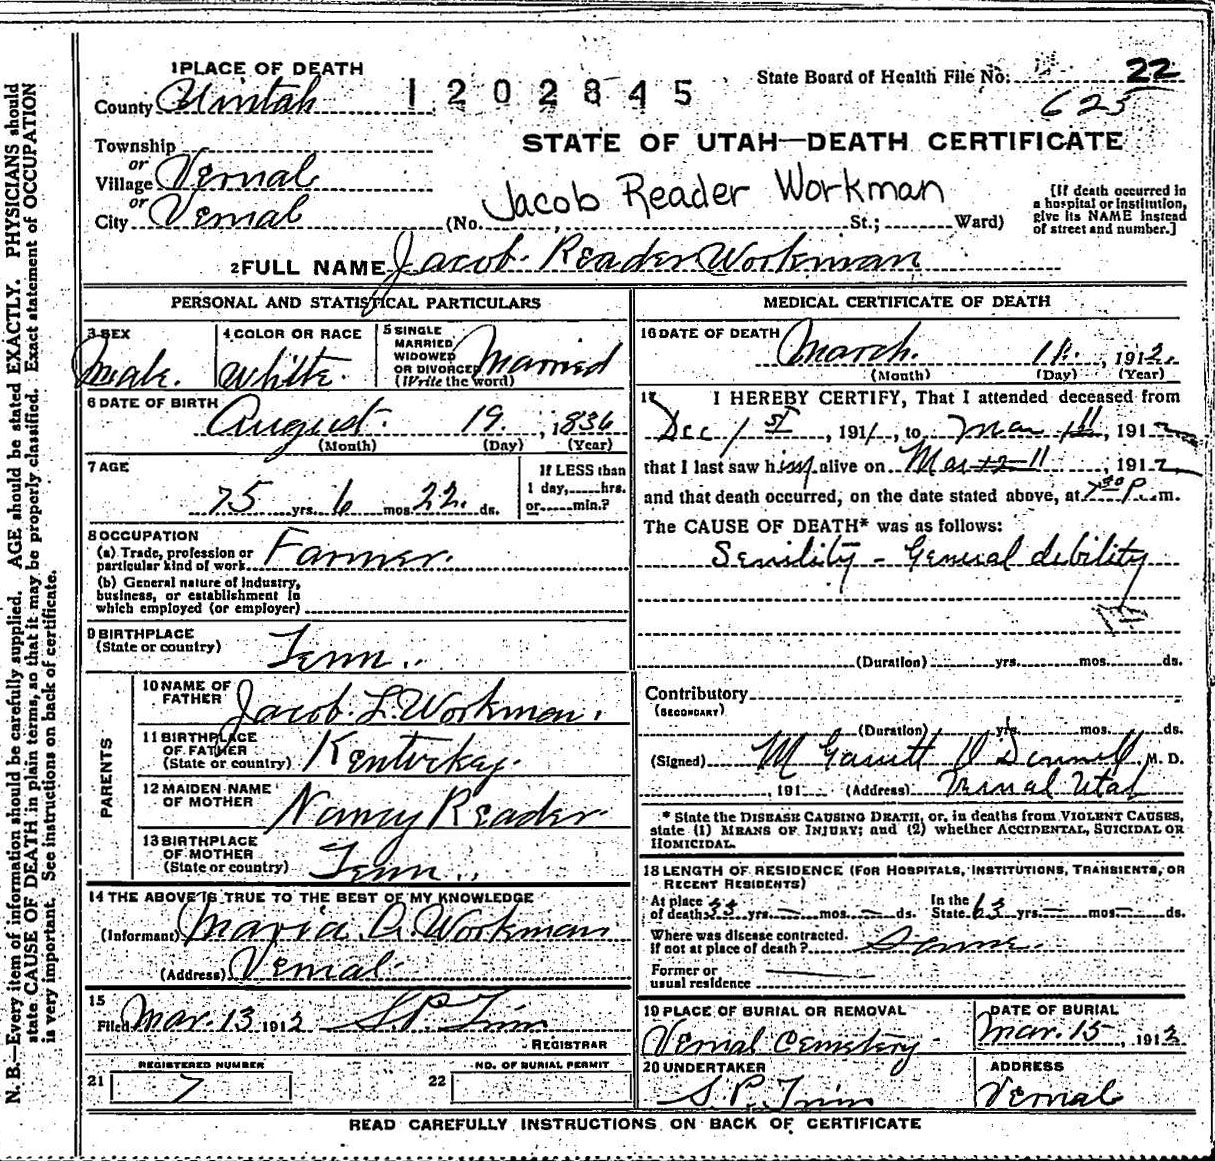 1 PLACE OF DEATH
County Uintah
1202845
State Board of Health File No. 22
623
Township
or
Village Vernal
or
City Vernal
STATE OF UTAH—DEATH CERTIFICATE
Jacob Reader Workman
(No. St.; Ward)
[If death occurred in
a hospital or institution,
give its NAME instead
of street and number.]
2 FULL NAME Jacob Reader Workman
PERSONAL AND STATISTICAL PARTICULARS
3 SEX
Male.
4 COLOR OR RACE
White.
5 SINGLE
MARRIED
WIDOWED
OR DIVORCED
(Write the word)
Married
6 DATE OF BIRTH August 19, 1836
(Month) (Day) (Year)
7 AGE
75 yrs. 6 mos. 22 ds.
If LESS than
1 day,.....hrs.
or.....min.?
8 OCCUPATION
(a) Trade, profession or
particular kind of work Farmer.
(b) General nature of industry,
business, or establishment in
which employed (or employer)
9 BIRTHPLACE
(State or country) Tenn.
PARENTS
10 NAME OF
FATHER Jacob L. Workman.
11 BIRTHPLACE
OF FATHER
(State or country) Kentuckay.
12 MAIDEN NAME
OF MOTHER Nancy Reader.
13 BIRTHPLACE
OF MOTHER
(State or country) Tenn.
14 THE ABOVE IS TRUE TO THE BEST OF MY KNOWLEDGE
(Informant) Workman
(Address) Vernal
15
Filed Mar. 13 1912 S.P.
REGISTRAR
REGISTERED NUMBER
21 7
NO. OF BURIAL PERMIT
22
MEDICAL CERTIFICATE OF DEATH
16 DATE OF DEATH March. 11., 1912.
(Month) (Day) (Year)
17 I HEREBY CERTIFY, That I attended deceased from
Dec 1st, 1911, to Mar 11, 1912
that I last saw him alive on Mar 12 11, 1912,
and that death occurred, on the date stated above, at 7 30 P. m.
The CAUSE OF DEATH* was as follows:
Senility - General debility
(Duration) yrs. mos. ds.
Contributory
(SECONDARY)
(Duration) yrs. mos. ds.
(Signed) M Garrett O'Donnell, M. D.
, 191 (Address) Vernal Utah
* State the DISEASE CAUSING DEATH, or, in deaths from VIOLENT CAUSES,
state (1) MEANS OF INJURY; and (2) whether ACCIDENTAL, SUICIDAL OR
HOMICIDAL.
18 LENGTH OF RESIDENCE (FOR HOSPITALS, INSTITUTIONS, TRANSIENTS, OR
RECENT RESIDENTS)
At place
of death 33 yrs. – mos. – ds.
In the
State 63 yrs. – mos. – ds.
Where was disease contracted.
If not at place of death? Same.
Former or
usual residence
19 PLACE OF BURIAL OR REMOVAL
Vernal Cemetery
DATE OF BURIAL
Mar. 15, 1912
20 UNDERTAKER
S.P.
ADDRESS
Vernal
READ CAREFULLY INSTRUCTIONS ON BACK OF CERTIFICATE
N. B.—Every item of information should be carefully supplied. AGE should be stated EXACTLY. PHYSICIANS should
state CAUSE OF DEATH in plain terms, so that it may be properly classified. Exact statement of OCCUPATION
is very important. See instructions on back of certificate.